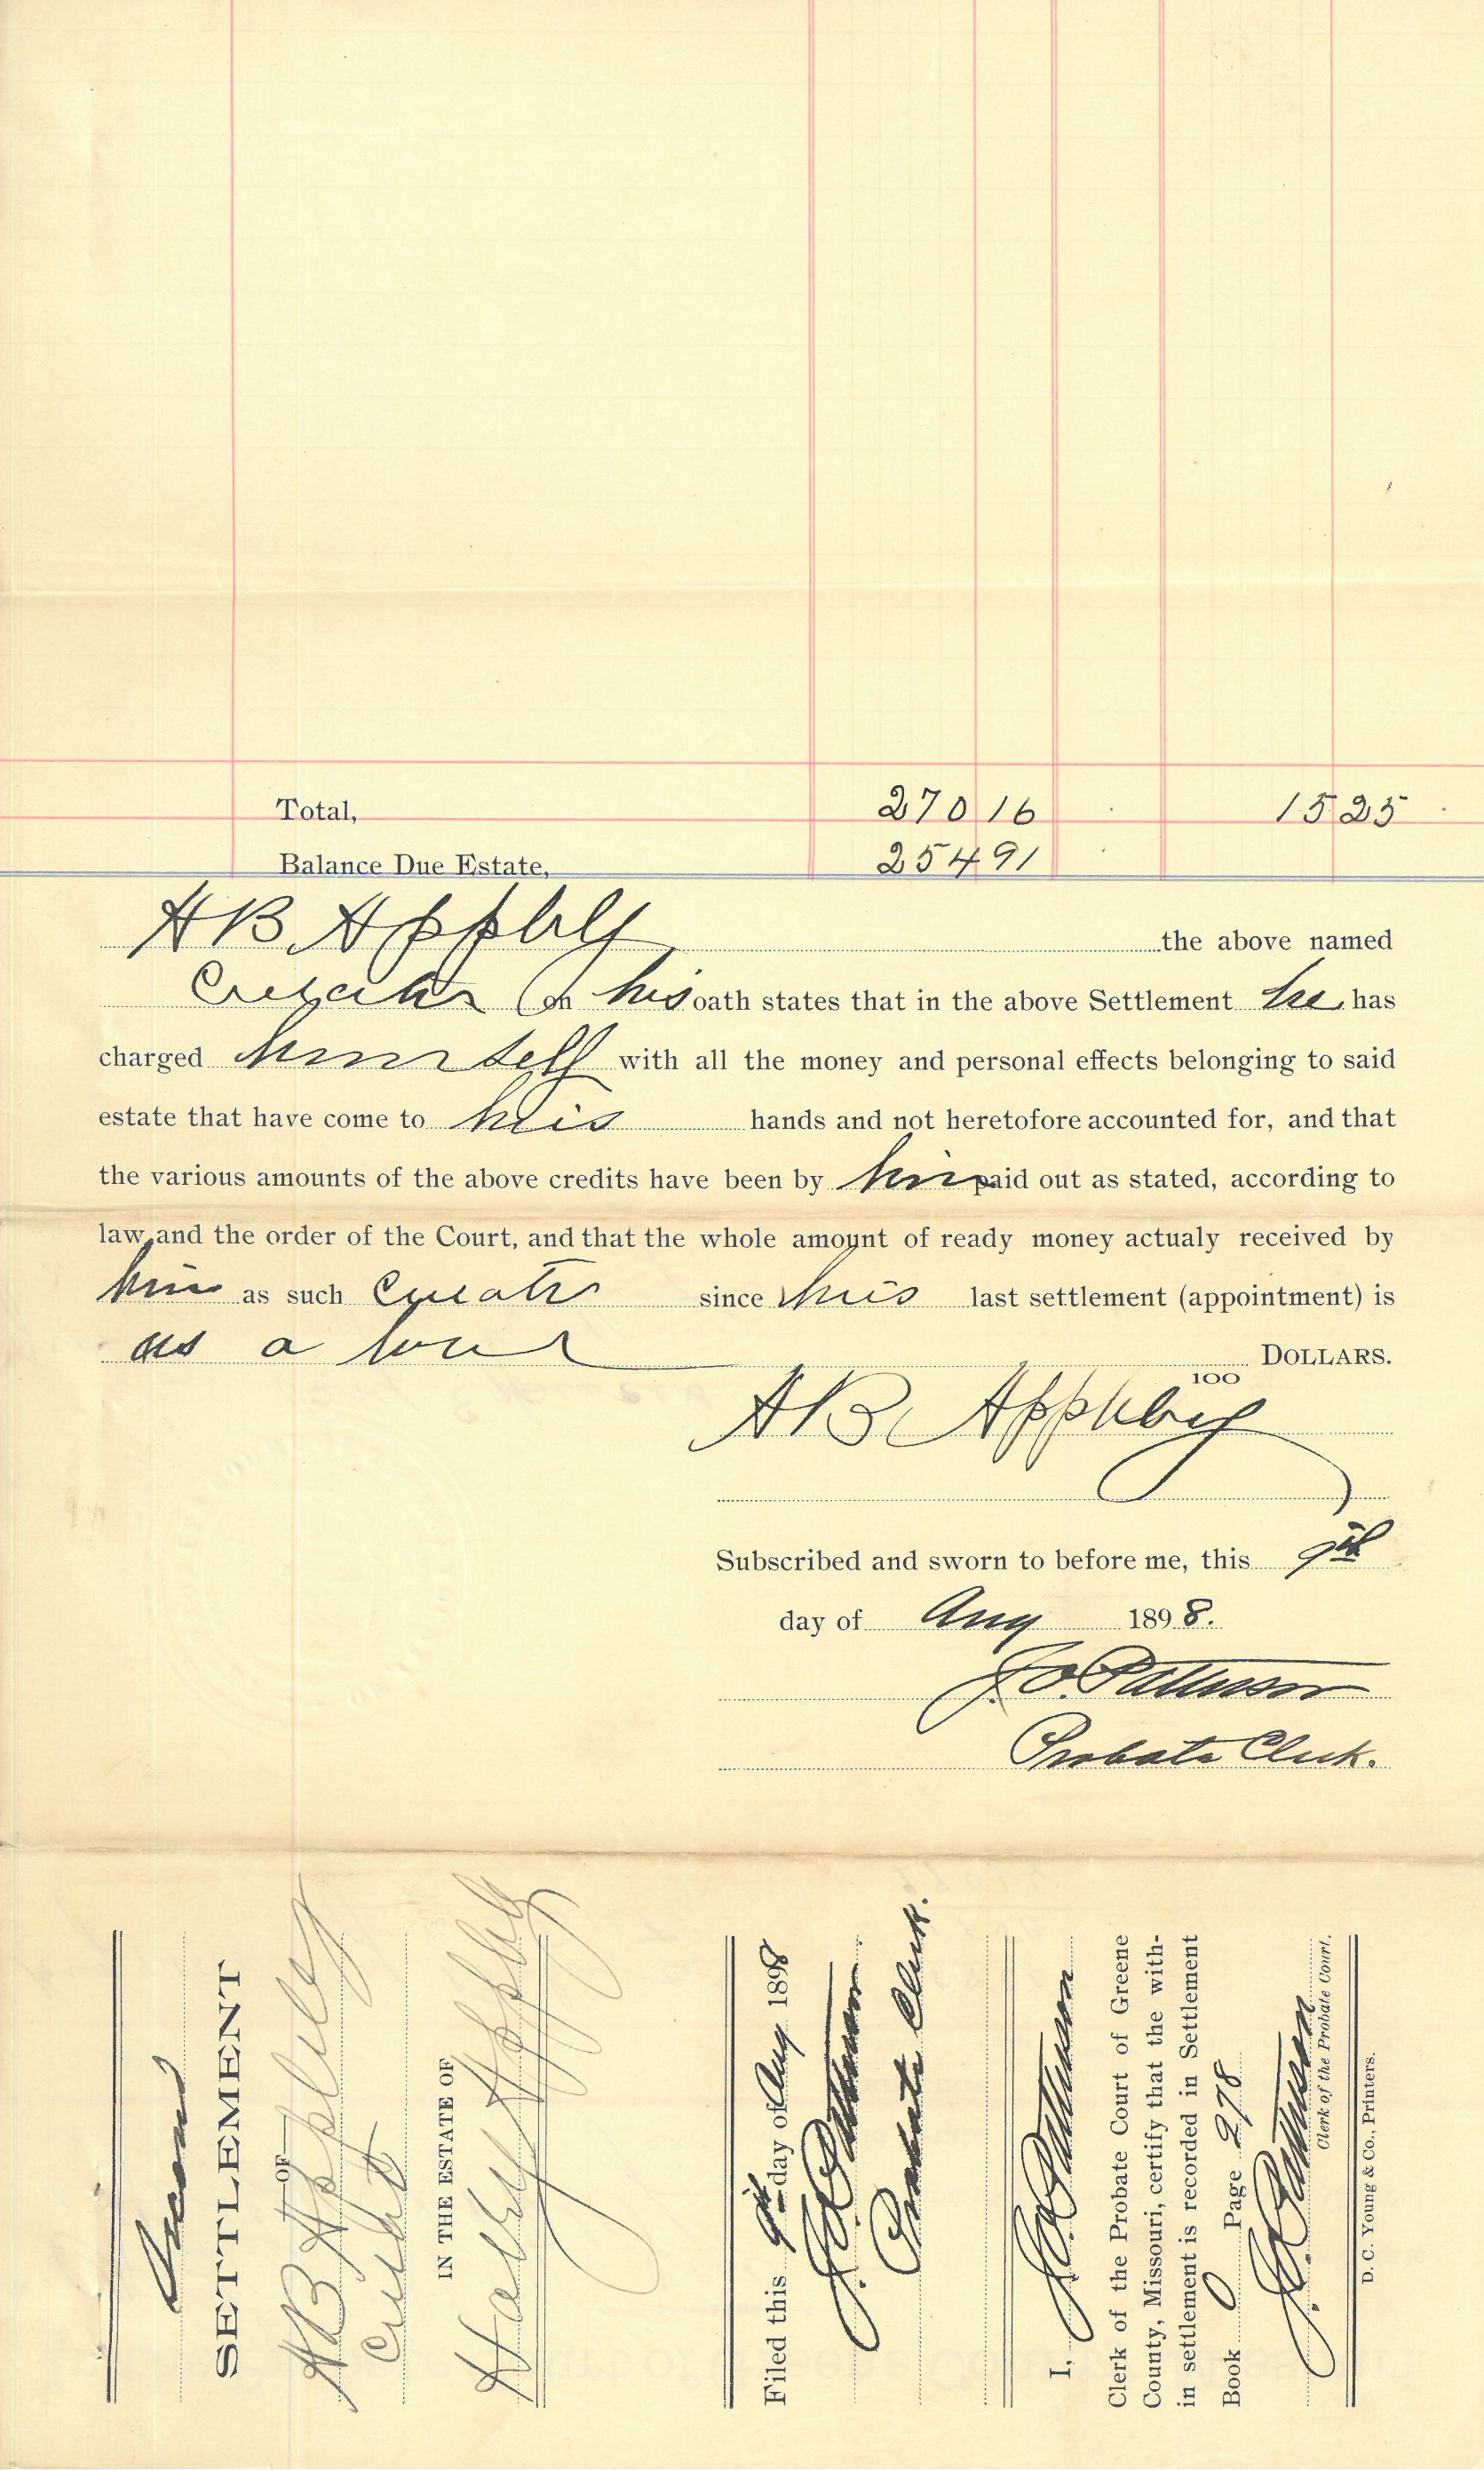 Total, 270 16 15 25
Balance Due Estate, 254 91
A B Appleby the above named
Curator on his oath states that in the above Settlement he has
charged himself with all the money and personal effects belonging to said
estate that have come to his hands and not heretofore accounted for, and that
the various amounts of the above credits have been by him paid out as stated, according to
law, and the order of the Court, and that the whole amount of ready money actualy received by
him as such Curator since his last settlement (appointment) is
as a bove DOLLARS.
100
A B Appleby
Subscribed and sworn to before me, this 9th
day of Aug 1898.
J. O. Patterson
Probate Clerk.
Annual
SETTLEMENT
OF
A B Appleby
Curator
IN THE ESTATE OF
Appleby
Filed this 9th day of Aug 1898
J. O. Patterson
Probate Clerk.
I, J. O. Patterson
Clerk of the Probate Court of Greene
County, Missouri, certify that the with-
in settlement is recorded in Settlement
Book O Page 278
J. O. Patterson
Clerk of the Probate Court.
D. C. Young & Co., Printers.